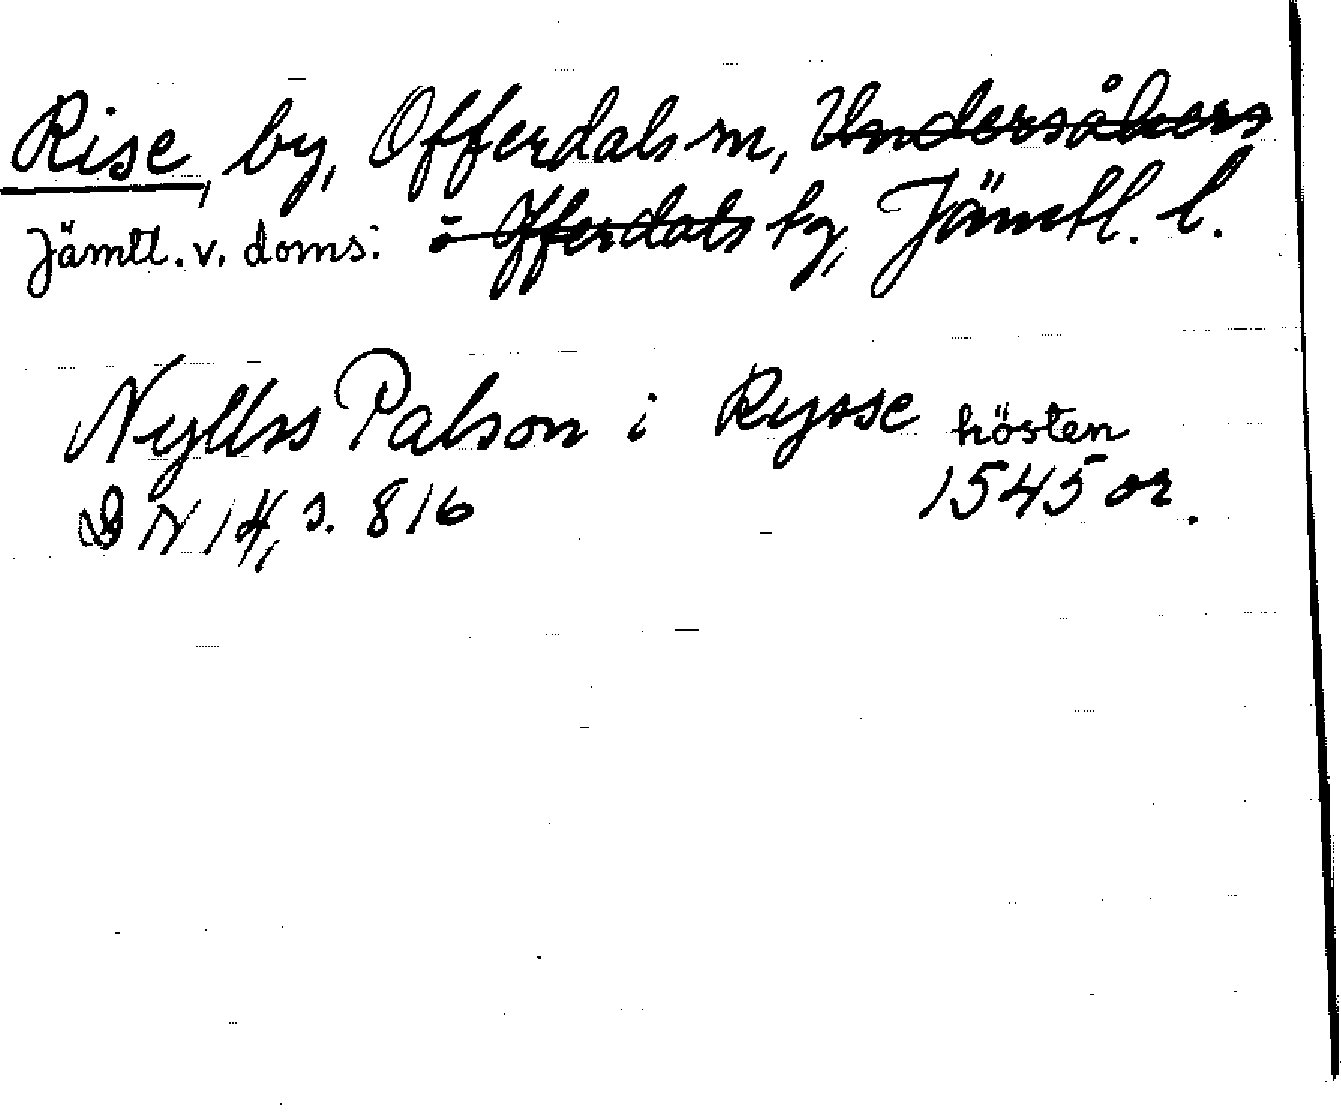 Rise, by, Offerdals sn, Undersåkers
Jämtl. v. doms: o Offerdals tg, Jämtl. l.
Nyllss Palson i Rysse hösten
D N 14, s. 816 1545 or.